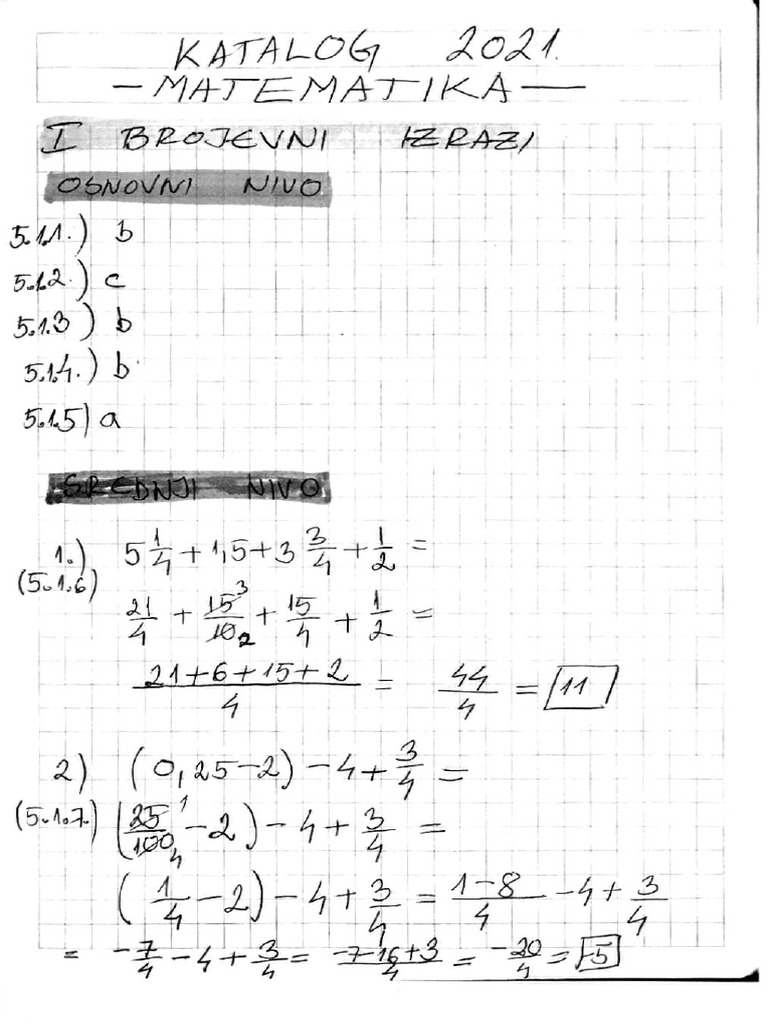 KATALOG 2021.
— MATEMATIKA —
I BROJEVNI IZRAZI
OSNOVNI NIVO
5.1.1.) b
5.1.2.) c
5.1.3) b
5.1.4.) b
5.1.5) a
SREDNJI NIVO
1.) 5 1/4 + 1,5 + 3 3/4 + 1/2 =
(5.1.6)
21/4 + 15³/10₂ + 15/4 + 1/2 =
(21+6+15+2)/4 = 44/4 = 11
2) (0,25-2) - 4 + 3/4 =
(5.1.7.) (25¹/100₄ - 2) - 4 + 3/4 =
(1/4 - 2) - 4 + 3/4 = (1-8)/4 - 4 + 3/4
= -7/4 - 4 + 3/4 = (-7-16+3)/4 = -20/4 = -5